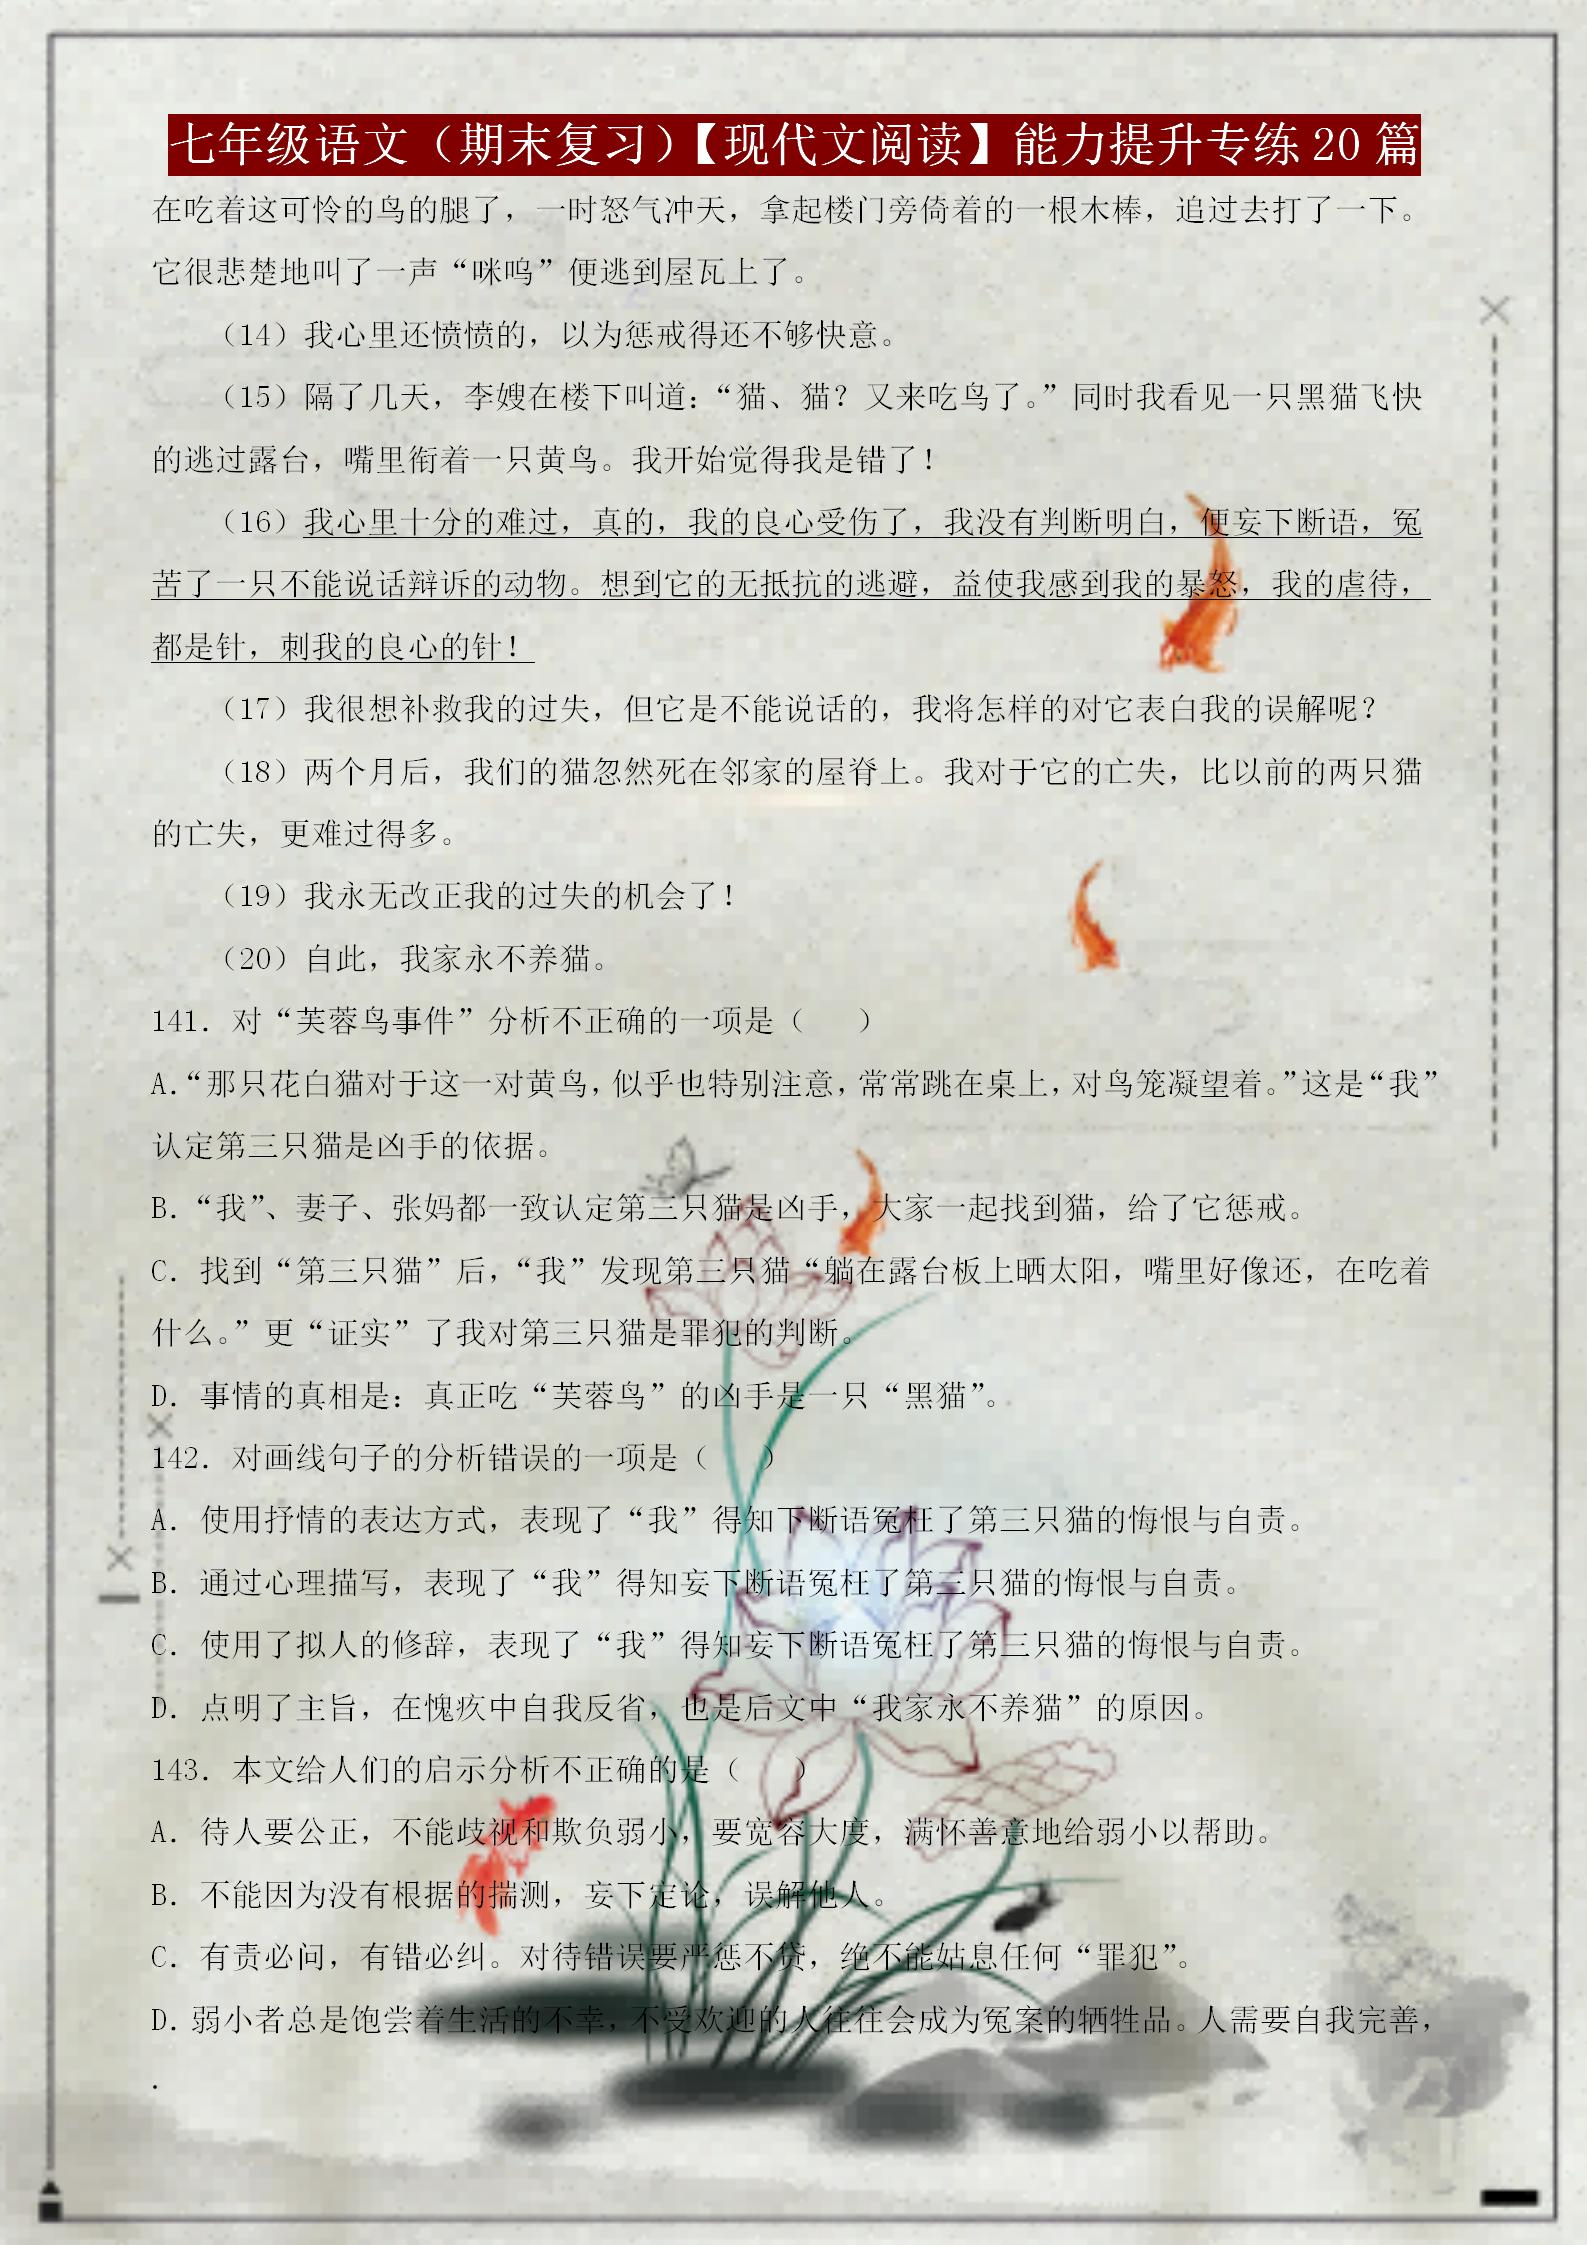 七年级语文（期末复习）【现代文阅读】能力提升专练20篇
在吃着这可怜的鸟的腿了，一时怒气冲天，拿起楼门旁倚着的一根木棒，追过去打了一下。
它很悲楚地叫了一声“咪呜”便逃到屋瓦上了。
（14）我心里还愤愤的，以为惩戒得还不够快意。
（15）隔了几天，李嫂在楼下叫道：“猫、猫？又来吃鸟了。”同时我看见一只黑猫飞快
的逃过露台，嘴里衔着一只黄鸟。我开始觉得我是错了！
（16）我心里十分的难过，真的，我的良心受伤了，我没有判断明白，便妄下断语，冤
苦了一只不能说话辩诉的动物。想到它的无抵抗的逃避，益使我感到我的暴怒，我的虐待，
都是针，刺我的良心的针！
（17）我很想补救我的过失，但它是不能说话的，我将怎样的对它表白我的误解呢？
（18）两个月后，我们的猫忽然死在邻家的屋脊上。我对于它的亡失，比以前的两只猫
的亡失，更难过得多。
（19）我永无改正我的过失的机会了！
（20）自此，我家永不养猫。
141．对“芙蓉鸟事件”分析不正确的一项是（　　）
A．“那只花白猫对于这一对黄鸟，似乎也特别注意，常常跳在桌上，对鸟笼凝望着。”这是“我”
认定第三只猫是凶手的依据。
B．“我”、妻子、张妈都一致认定第三只猫是凶手，大家一起找到猫，给了它惩戒。
C．找到“第三只猫”后，“我”发现第三只猫“躺在露台板上晒太阳，嘴里好像还，在吃着
什么。”更“证实”了我对第三只猫是罪犯的判断。
D．事情的真相是：真正吃“芙蓉鸟”的凶手是一只“黑猫”。
142．对画线句子的分析错误的一项是（　　）
A．使用抒情的表达方式，表现了“我”得知下断语冤枉了第三只猫的悔恨与自责。
B．通过心理描写，表现了“我”得知妄下断语冤枉了第三只猫的悔恨与自责。
C．使用了拟人的修辞，表现了“我”得知妄下断语冤枉了第三只猫的悔恨与自责。
D．点明了主旨，在愧疚中自我反省，也是后文中“我家永不养猫”的原因。
143．本文给人们的启示分析不正确的是（　　）
A．待人要公正，不能歧视和欺负弱小，要宽容大度，满怀善意地给弱小以帮助。
B．不能因为没有根据的揣测，妄下定论，误解他人。
C．有责必问，有错必纠。对待错误要严惩不贷，绝不能姑息任何“罪犯”。
D．弱小者总是饱尝着生活的不幸，不受欢迎的人往往会成为冤案的牺牲品。人需要自我完善，
.